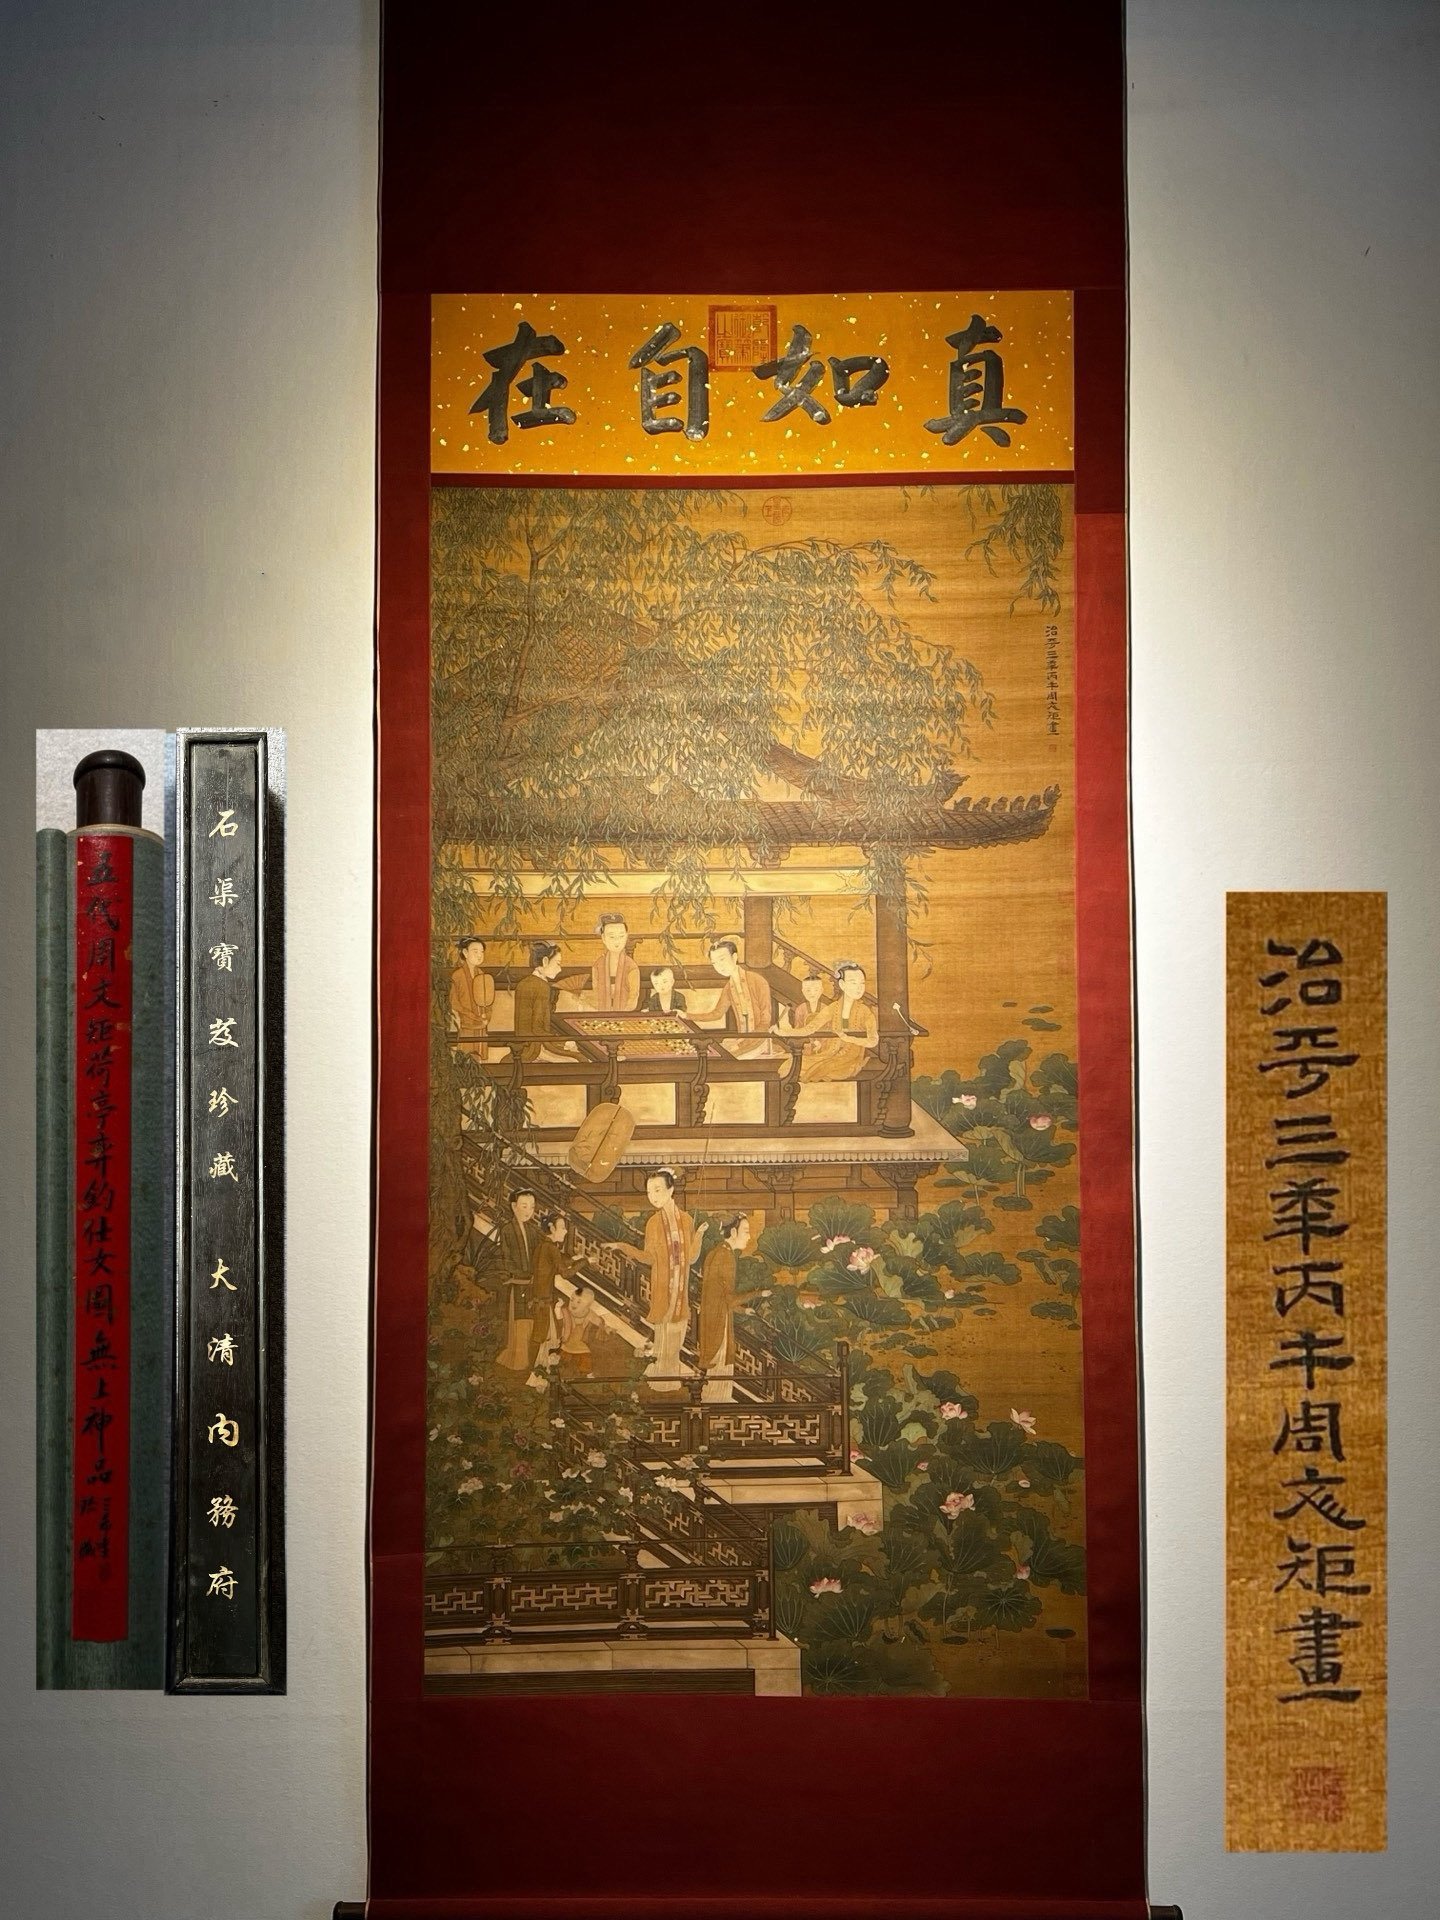 真如自在
治平三年丙午周文矩畫
五代周文矩荷亭弈釣仕女圖無上神品
石渠寶芨珍藏 大清內務府
治平三年丙午周文矩畫